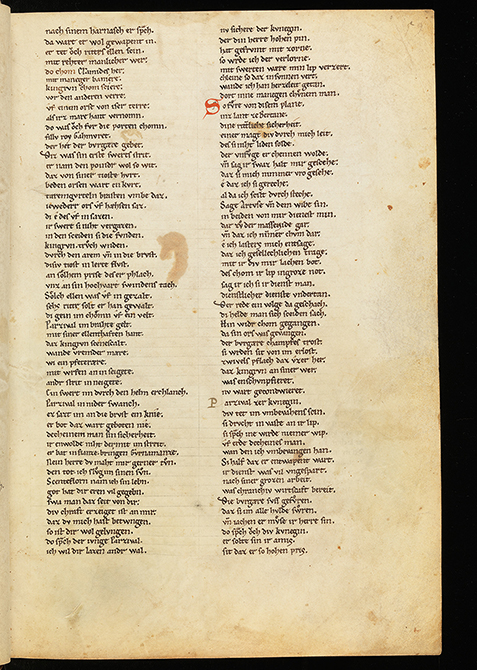 nach sinem harnasch er sp̄ch.
da wart er wol gewapent in.
er tet och ritters ellen sein.
mit rehter manlicher wer.
do chom Clamides her.
mit maneger baniere.
kingrvn chom sciere.
vor den anderen verre.
als irz mære hant vernomn.
do was och fvr die porten chomn.
fillv roy Gahmvret.
der het der bvrgære gebet.
Diz was sin erste swerts strit.
er nam den poinder wol so wit.
daz von siner tioste hvrt.
beden orsen wart en kvrt.
ietweders ors vf hahsen saz.
di e des vf in sazen.
ir swert si niht vergazen.
in den sceiden si die fvnden.
kingrvn trvch wnden.
dvrch den arem vn̄ in die brvst.
disiv tiost in lerte flvst.
an sölhem prise des er phlach.
vnz an sin hochvart swindens tach.
Solch ellen was vf in gezalt.
sehs ritter solt er han gevalt.
di gein im chomn vf ein velt.
Parzival im brahte gelt.
mit siner ellenthaften hant.
daz kingrvn scenescalt.
wande vremder mære.
wi ein pfeterære.
mit wrfen an in seigete.
ander strit in neigete.
ein swert im dvrch den helm erchlanch.
Parzival in nider swanch.
er sazt im an die brvst ein knie.
er bot daz wart geboten nie.
decheinem man sin sicherheit.
ir enwolde niht der mit im streit.
er bat in fianze bringen Gvrnamanze.
nein herre dv maht mir gerner tvn.
den tot ich slvch im sinen svn.
Scentaflorn nam ich sin lebn.
got hat dir eren vil gegebn.
swa man daz seit von dir.
div chraft erzeiget ist an mir.
daz dv mich hast betwngen.
so ist dir wol gelvngen.
do sp̄ch der ivnge Parzival.
ich wil dir lazen andr wal.
nv sichere der kvnegin.
der din herre hohen pin.
hat gefrvmt mit zorne.
so wrde ich der verlorne.
mit swerten wære min lip verzert.
chleine so daz in svnnen vert.
wande ich han herzeleit getan.
dort inne manegen chvnen man.
So fvre von disem plane.
inz lant ze Bertane.
dine ritterliche sicherheit.
einer magt div dvrch mich leit.
des si niht liden solde.
der vnfvge er chennen wolde.
vn̄ sag ir swaz halt mir geschehe.
daz si mich nimmer vro gesehe.
e daz ich si gereche.
al da ich scilt dvrch steche.
Sage Artvse vn̄ dem wibe sin.
in beiden von mir dienest min.
dar zv der massenide gar.
vn̄ daz ich nimer chvm dar.
e ich lasters mich entsage.
daz ich gesellechlichen trage.
mit ir div mir lachen bot.
des chom ir lip in groze not.
sag ir ich si ir dienst man.
dienstlicher dienste vndertan.
Der rede ein volge da geschach.
di helde man sich sceiden sach.
Hin widr chom gegangen.
da sin ors was gevangen.
der bvrgære champfes trost.
si wrden sit von im erlost.
zwivels pflach daz vzer her.
daz kingrvn an siner wer.
was enschvnpfieret.
nv wart gecondwieret.
Parzival zer kvnegin.
div tet im vmbevahens scin.
si drvcht in vaste an ir lip.
si sp̄ch ine wirde nimer wip.
vf erde decheines man.
wan den ich vmbevangen han.
Si half daz er entwapent wart.
ir dienst was vil vngespart.
nach siner grozen arbeit.
was chranchiv wirtschaft bereit.
Die bvrgære svs gefvren.
daz si im alle hvlde swren.
vn̄ iachen er mvse ir herre sin.
do sp̄ch och div kvnegin.
er solte sin ir amis.
sit daz er so hohen pris.